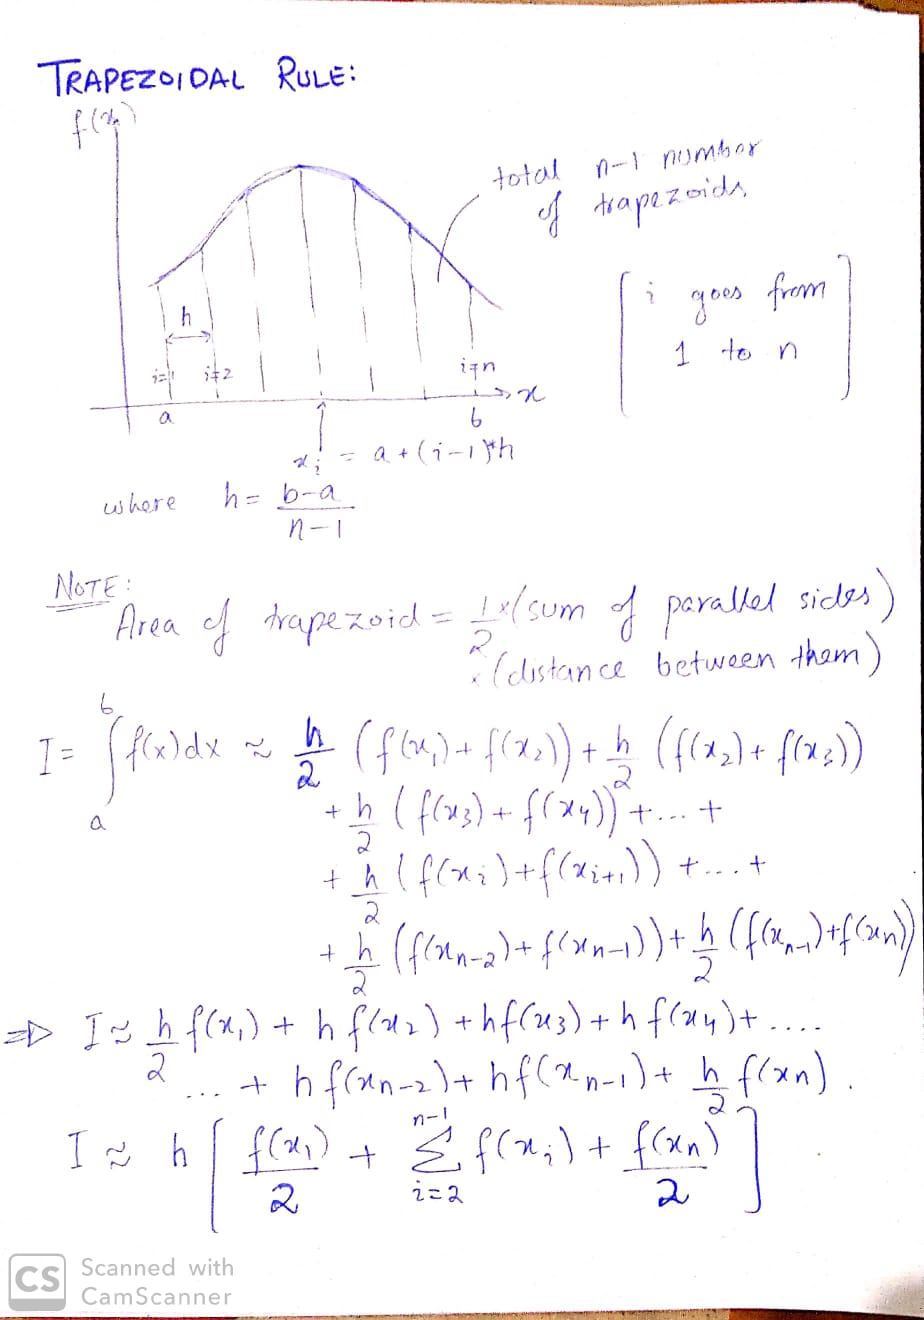 TRAPEZOIDAL RULE:
f(x)
total n-1 number
of trapezoids
[ i goes from
1 to n ]
h
i=1 i=2 i=n
x
a b
x_i = a+(i-1)*h
where h = b-a
n-1
NOTE:
Area of trapezoid = 1/2 x(sum of parallel sides)
x(distance between them)
I = ∫_a^b f(x)dx ≈ h/2 (f(x₁)+f(x₂)) + h/2 (f(x₂)+f(x₃))
+ h/2 (f(x₃)+f(x₄)) +...+
+ h/2 (f(x_i)+f(x_{i+1})) +...+
+ h/2 (f(x_{n-2})+f(x_{n-1})) + h/2 (f(x_{n-1})+f(x_n))
⇒ I ≈ h/2 f(x₁) + h f(x₂) + hf(x₃) + h f(x₄)+....
... + h f(x_{n-2}) + hf(x_{n-1}) + h/2 f(x_n).
I ≈ h [ f(x₁)/2 + Σ_{i=2}^{n-1} f(x_i) + f(x_n)/2 ]
CS Scanned with
CamScanner